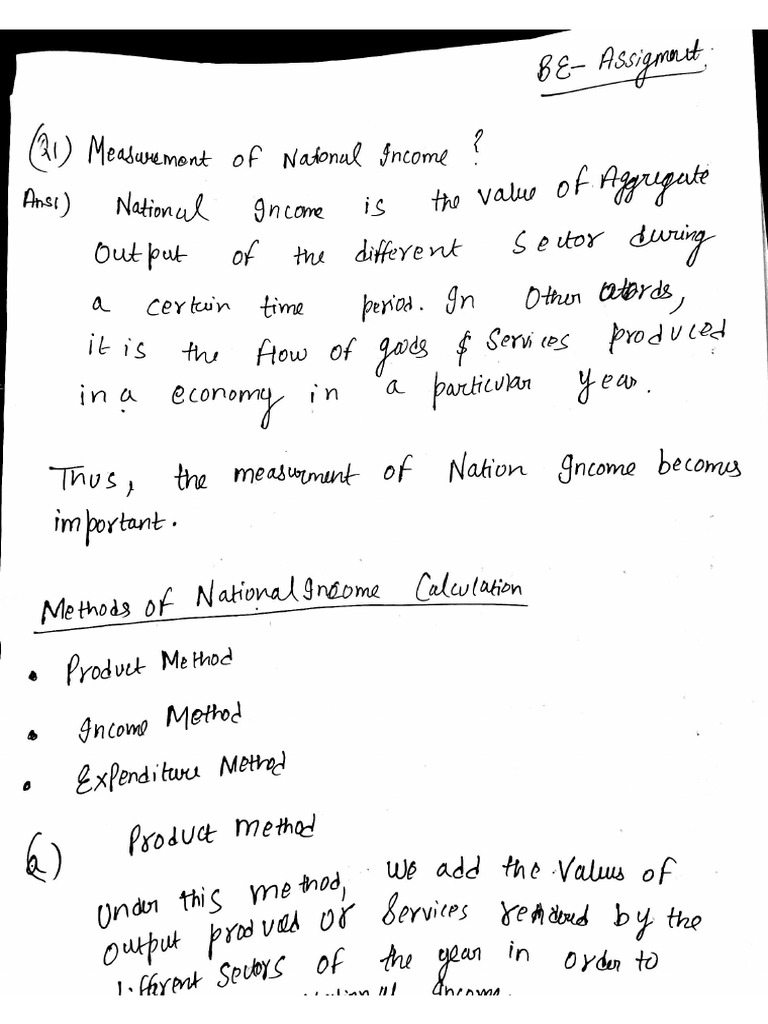 BE- Assigment.
(Q1) Measurement of National Income ?
Ans1) National Income is the value of Aggregate
Output of the different Sector during
a certain time period. In Other words,
it is the flow of goods & Services produced
in a economy in a particular year.
Thus, the measurment of Nation Income becomes
important.
Methods of National Income Calculation
• Product Method
• Income Method
• Expenditure Method
a) Product Method
Under this method, we add the Values of
output produced or Services rendered by the
different Sectors of the year in order to
Income